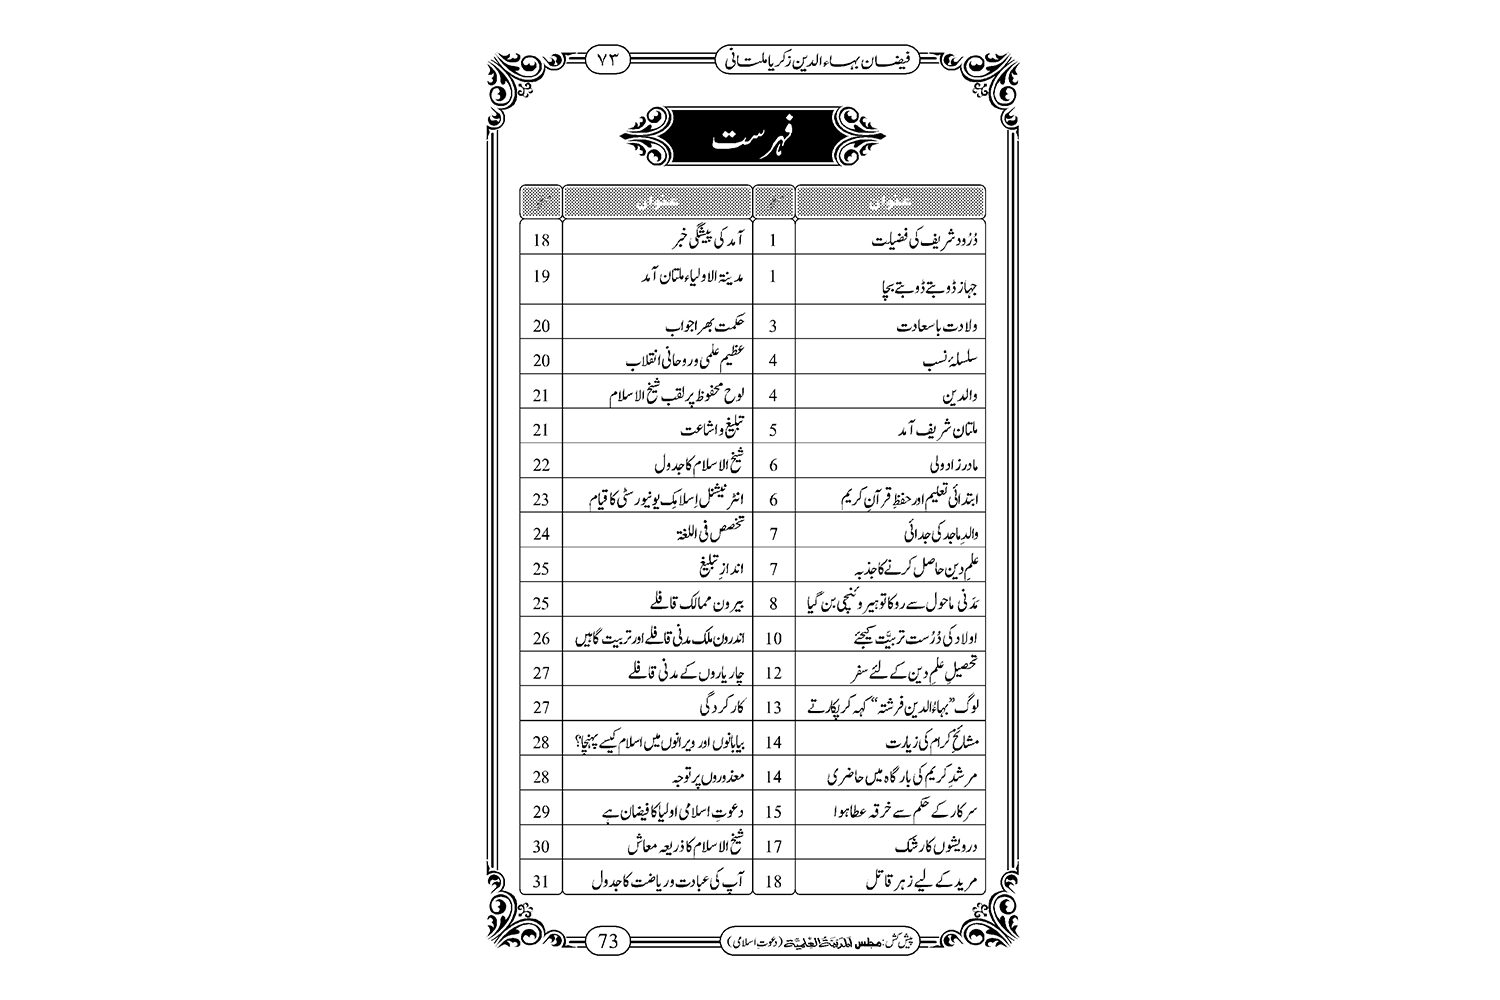 فیضان بہاء الدین زکریا ملتانی ۷۳
فہرست
عنوان عنوان
دُرُود شریف کی فضیلت 1 آمد کی پیشگی خبر 18
جہاز ڈوبتے ڈوبتے بچا 1 مدینۃ الاولیاء ملتان آمد 19
ولادت باسعادت 3 حکمت بھرا جواب 20
سلسلۂ نسب 4 عظیم علمی و روحانی انقلاب 20
والدین 4 لوح محفوظ پر لقب شیخ الاسلام 21
ملتان شریف آمد 5 تبلیغ و اشاعت 21
مادر زاد ولی 6 شیخ الاسلام کا جدول 22
ابتدائی تعلیم اور حفظِ قرآنِ کریم 6 انٹرنیشنل اِسلامِک یونیورسٹی کا قیام 23
والدِ ماجد کی جدائی 7 تخصص فی اللغۃ 24
علمِ دین حاصل کرنے کا جذبہ 7 اندازِ تبلیغ 25
مَدَنی ماحول سے روکا تو ہیروئنچی بن گیا 8 بیرون ممالک قافلے 25
اولاد کی دُرُست تربیَّت کیجئے 10 اندرون ملک مدنی قافلے اور تربیت گاہیں 26
تحصیلِ علمِ دین کے لئے سفر 12 چار یاروں کے مدنی قافلے 27
لوگ ”بہاءُ الدین فرشتہ“ کہہ کر پکارتے 13 کارکردگی 27
مشائخِ کرام کی زیارت 14 بیابانوں اور ویرانوں میں اسلام کیسے پہنچا؟ 28
مرشدِ کریم کی بارگاہ میں حاضری 14 معذوروں پر توجہ 28
سرکار کے حکم سے خرقہ عطا ہوا 15 دعوتِ اسلامی اولیا کا فیضان ہے 29
درویشوں کا رشک 17 شیخ الاسلام کا ذریعہ معاش 30
مرید کے لیے زہر قاتل 18 آپ کی عبادت و ریاضت کا جدول 31
پیش کش: مجلس المدینۃ العلمیۃ (دعوتِ اسلامی) 73